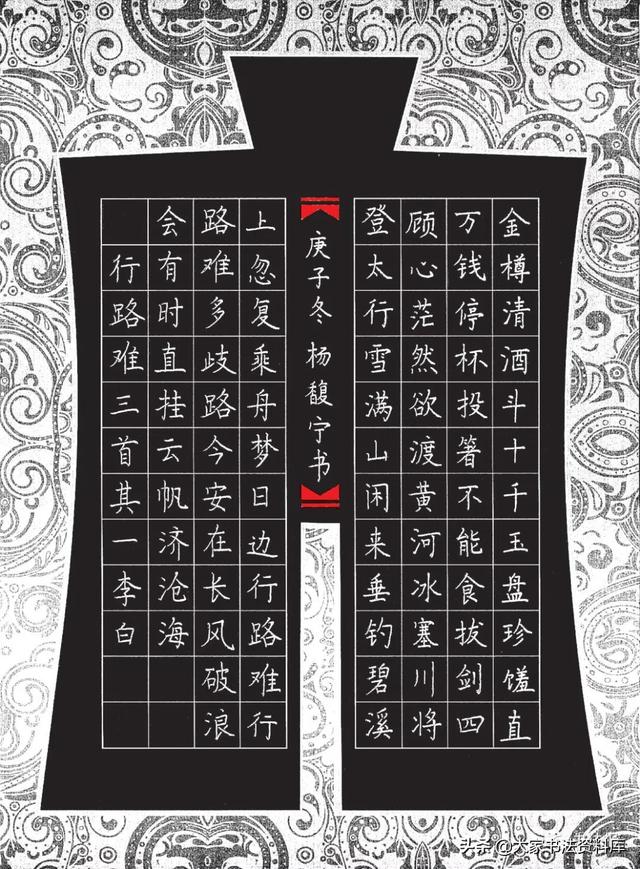 金樽清酒斗十千玉盘珍馐直
万钱停杯投箸不能食拔剑四
顾心茫然欲渡黄河冰塞川将
登太行雪满山闲来垂钓碧溪
上忽复乘舟梦日边行路难行
路难多歧路今安在长风破浪
会有时直挂云帆济沧海
行路难三首其一李白
庚子冬杨馥宁书
头条@大家书法资料库